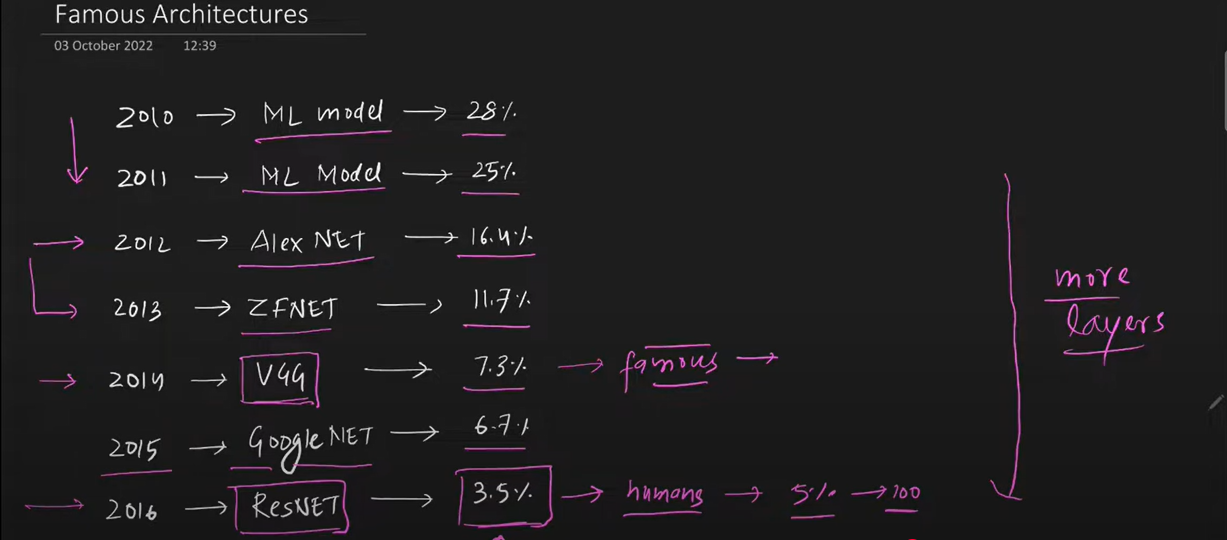 Famous Architectures
03 October 2022 12:39
2010 → ML model → 28%
2011 → ML Model → 25%
2012 → Alex NET → 16.4%
2013 → ZFNET → 11.7%
more
layers
2014 → VGG → 7.3% → famous →
2015 → Google NET → 6.7%
2016 → ResNET → 3.5% → humans → 5% → 100